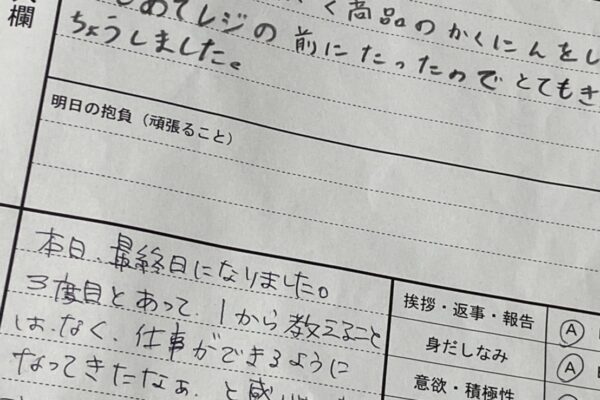 欄
く商品のかくにんをし
じめてレジの前にたったのでとてもき
ちょうしました。
明日の抱負（頑張ること）
本日、最終日になりました。
3度目とあって、1から教えること
は、なく、仕事ができるように
なってきたなぁ、と感
挨拶・返事・報告 A
身だしなみ A
意欲・積極性